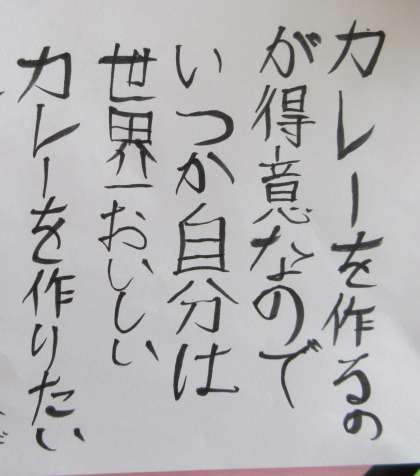 カレーを作るの
が得意なので
いつか自分は
世界一おいしい
カレーを作りたい